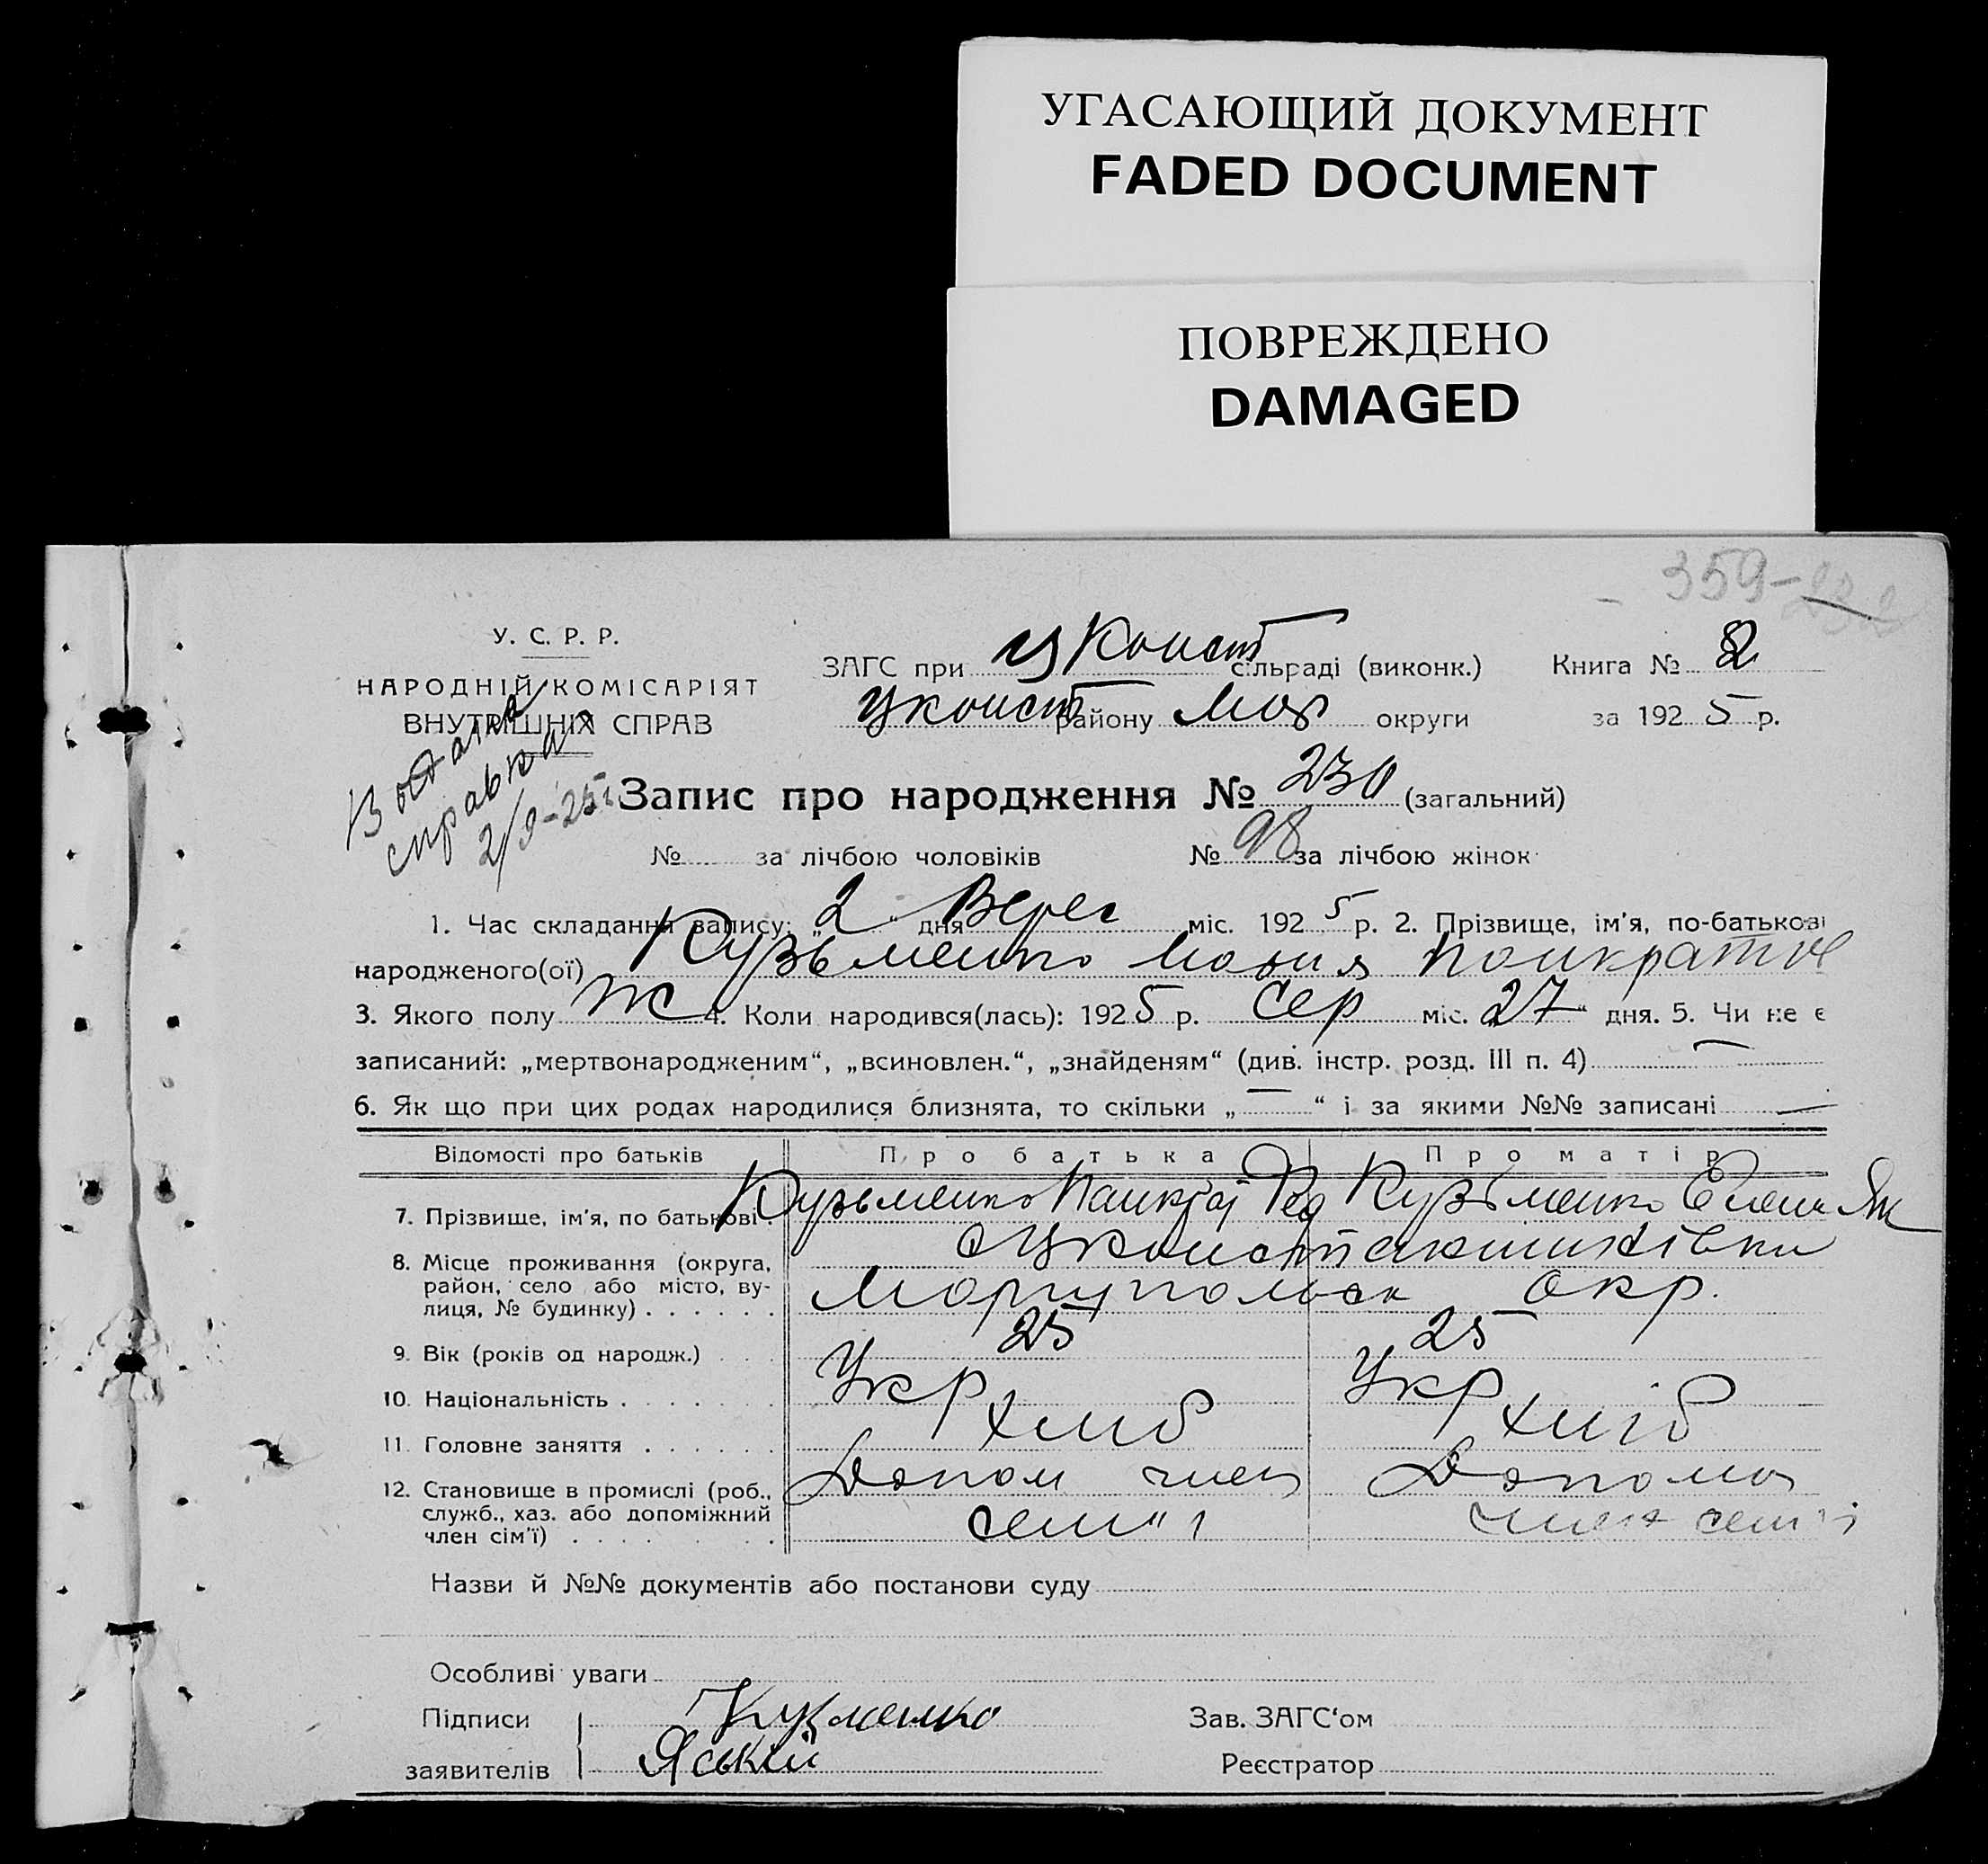 УГАСАЮЩИЙ ДОКУМЕНТ
FADED DOCUMENT
ПОВРЕЖДЕНО
DAMAGED
359-232
У. С. Р. Р.
НАРОДНІЙ КОМІСАРІЯТ
ВНУТРІШНІХ СПРАВ
ЗАГС при У Конст сільраді (виконк.) Книга № 2
Уконст району Мар округи за 1925 р.
справка
2/9-25
Запис про народження № 230 (загальний)
№ за лічбою чоловіків № 98 за лічбою жінок
1. Час складання запису: „2“ дня Верес міс. 1925 р. 2. Прізвище, ім'я, по-батькові
народженого(ої) Кузьменко Мария Панкратов
3. Якого полу ж 4. Коли народився(лась): 1925 р. Сер міс. „27“ дня. 5. Чи не є
записаний: „мертвонародженим“, „всиновлен.“, „знайденям“ (див. інстр. розд. III п. 4) —
6. Як що при цих родах народилися близнята, то скільки „—“ і за якими №№ записані —
Відомості про батьків Про батька Про матір
7. Прізвище, ім'я, по батькові. Кузьменко Панкрат Фед Кузьменко Елена Як
8. Місце проживання (округа, район, село або місто, вулиця, № будинку) с Уконстантинівки
Маріупольск окр.
9. Вік (років од народж.) 25 25
10. Національність Укр Укр
11. Головне заняття хліб хліб
12. Становище в промислі (роб., служб., хаз. або допоміжний член сім'ї) Допом член Допом
семьї член семьї
Назви й №№ документів або постанови суду
Особливі уваги
Підписи Кузменко Зав. ЗАГС'ом
заявителів Яський Реєстратор